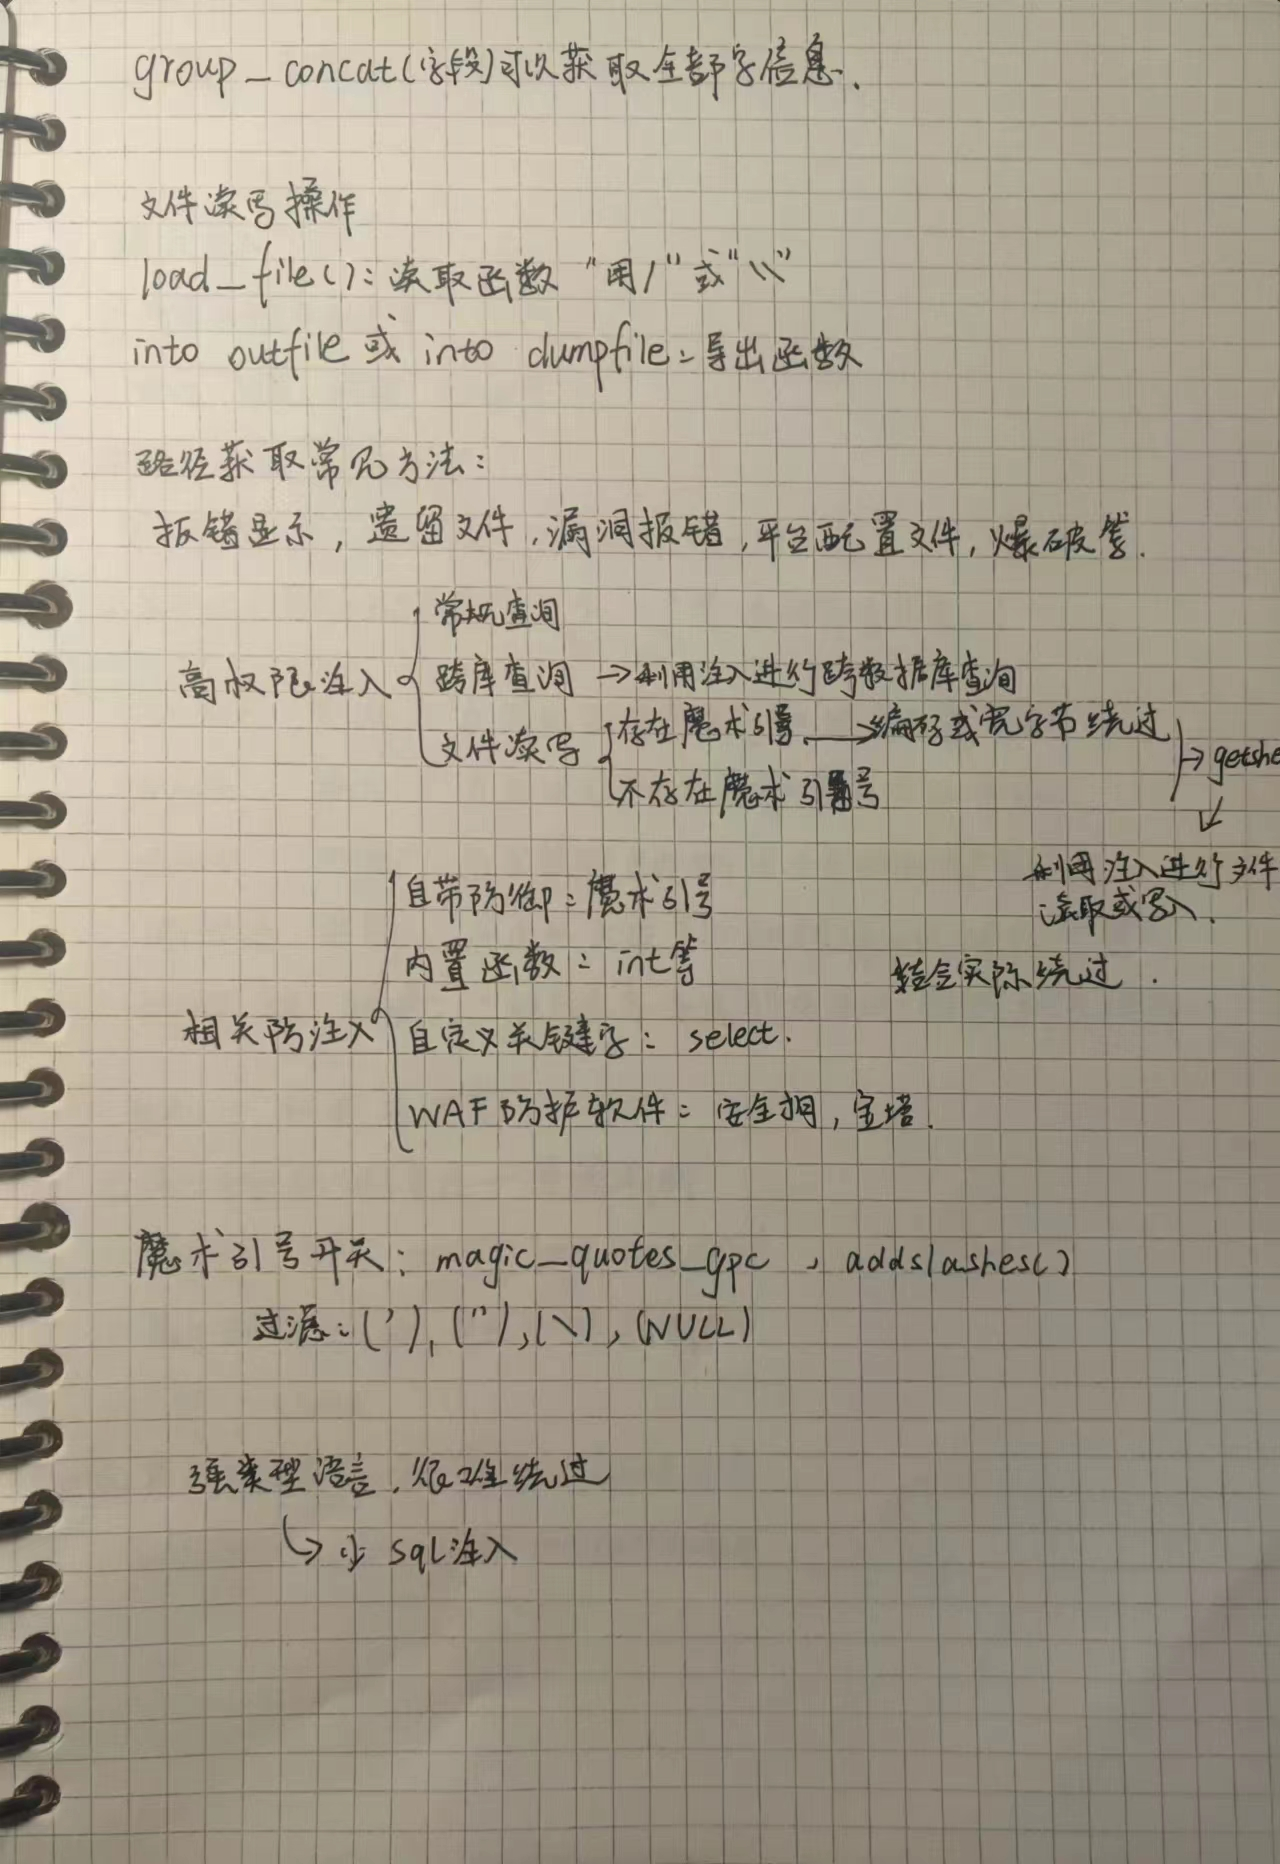 group_concat(字段)可以获取全部字信息.
文件读写操作
load_file():读取函数 "用/"或"\\"
into outfile 或 into dumpfile:导出函数
路径获取常见方法:
报错显示,遗留文件,漏洞报错,平台配置文件,爆破等.
高权限注入
常规查询
跨库查询 →利用注入进行跨数据库查询
文件读写
存在魔术引号.→编码或宽字节绕过
不存在魔术引号
→getshe
↓
利用注入进行文件
读取或写入.
相关防注入
自带防御:魔术引号
内置函数:int等
结合实际绕过.
自定义关键字:select.
WAF防护软件:安全狗,宝塔.
魔术引号开关:magic_quotes_gpc,addslashes()
过滤:('),("),(\),(NULL)
强类型语言,很难绕过
↳少 sql注入